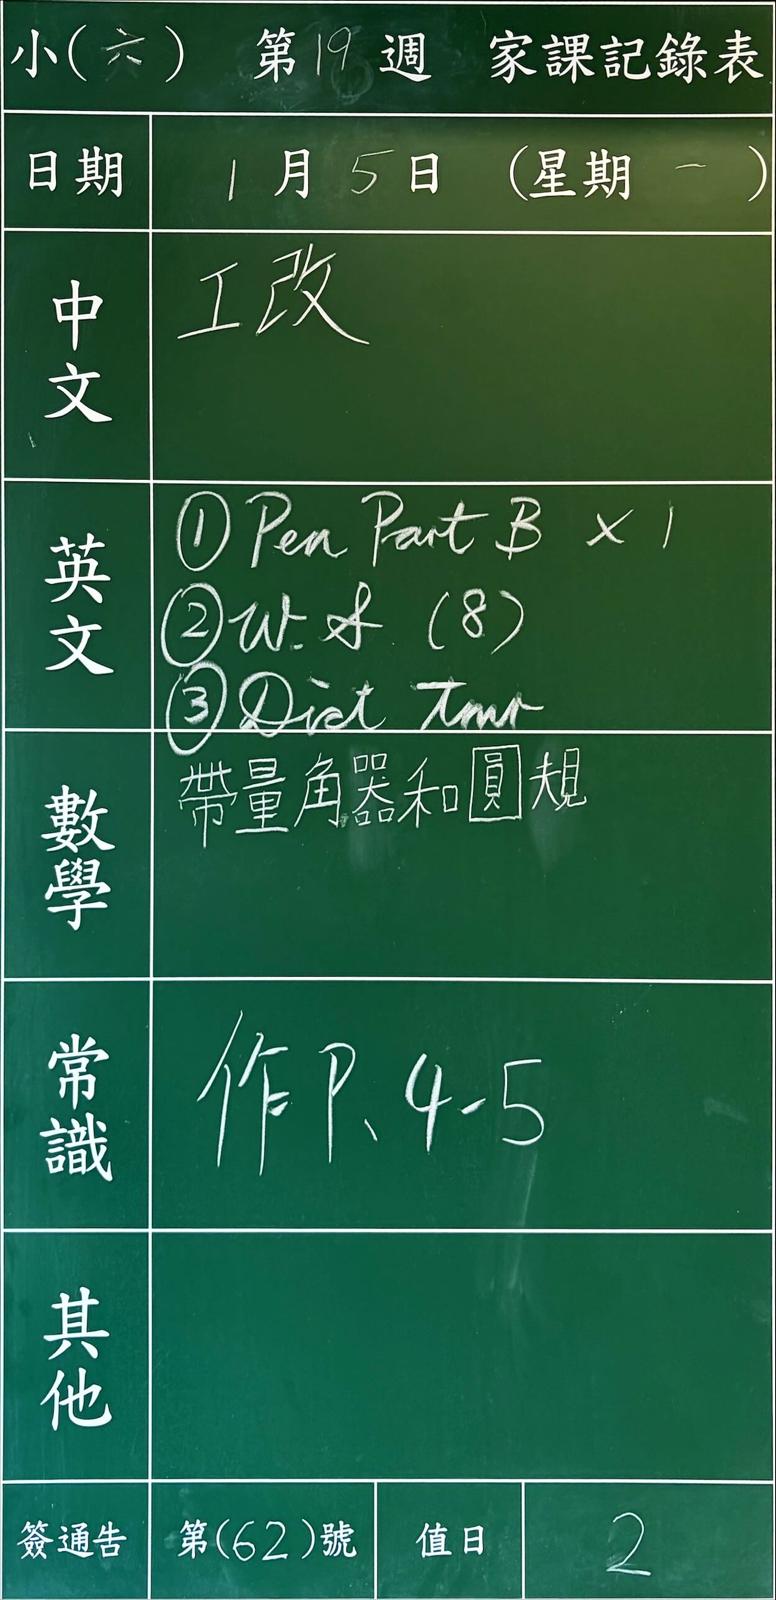 小(六) 第19週 家課記錄表
日期 1月5日 (星期一)
中文 工改
英文 ① Pen Part B × 1
② W.S (8)
③ Dict Tmr
數學 帶量角器和圓規
常識 作P、4-5
其他
簽通告 第(62)號 值日 2